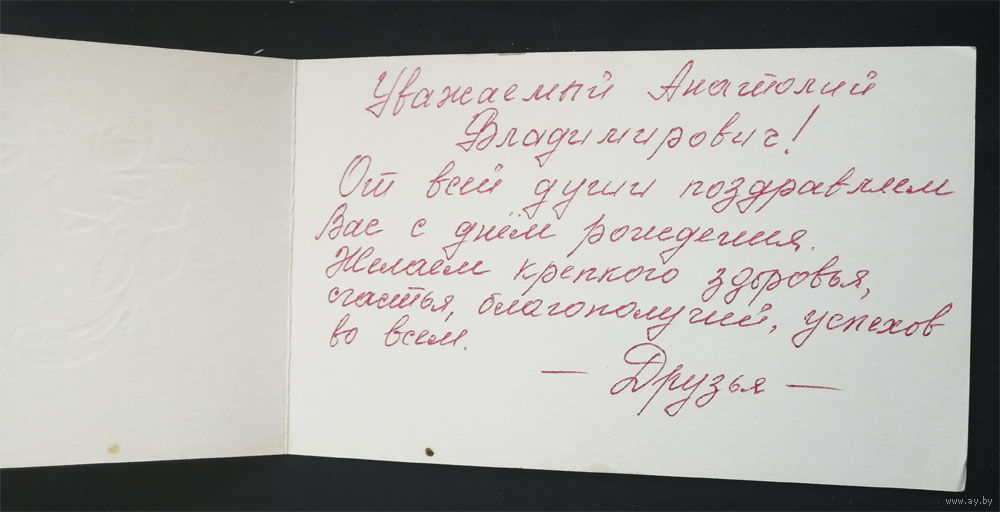 Уважаемый Анатолий
Владимирович!
От всей души поздравляем
Вас с днём рождения.
Желаем крепкого здоровья,
счастья, благополучий, успехов
во всем.
— Друзья —
www.ay.by